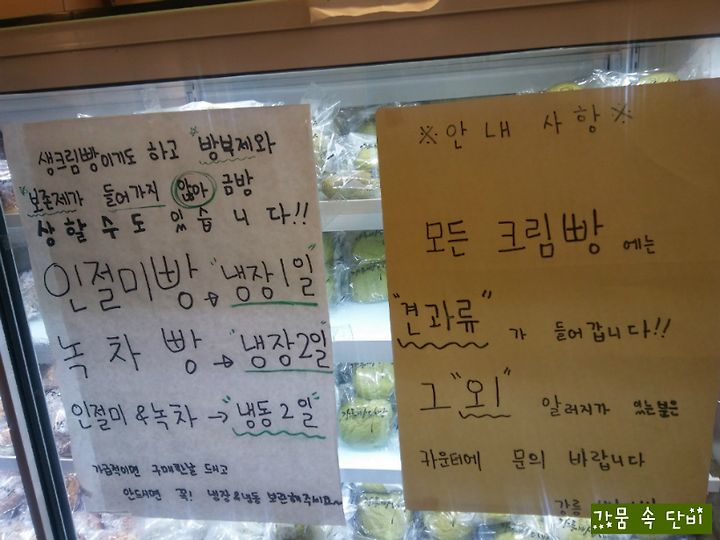 생크림빵이기도 하고 "방부제와
"보존제가 들어가지 않아 금방
상할수도 있습니다!!
인절미빵 → "냉장1일"
녹차빵 → "냉장2일"
인절미&녹차 → "냉동2일"
가급적이면 구매한날 드시고
안드시면 꼭! 냉장&냉동 보관해주세요~
※안내 사항※
모든 크림빵에는
"견과류"가 들어갑니다!!
그"외" 알러지가 있는분은
카운터에 문의 바랍니다
강릉
가뭄 속 단비